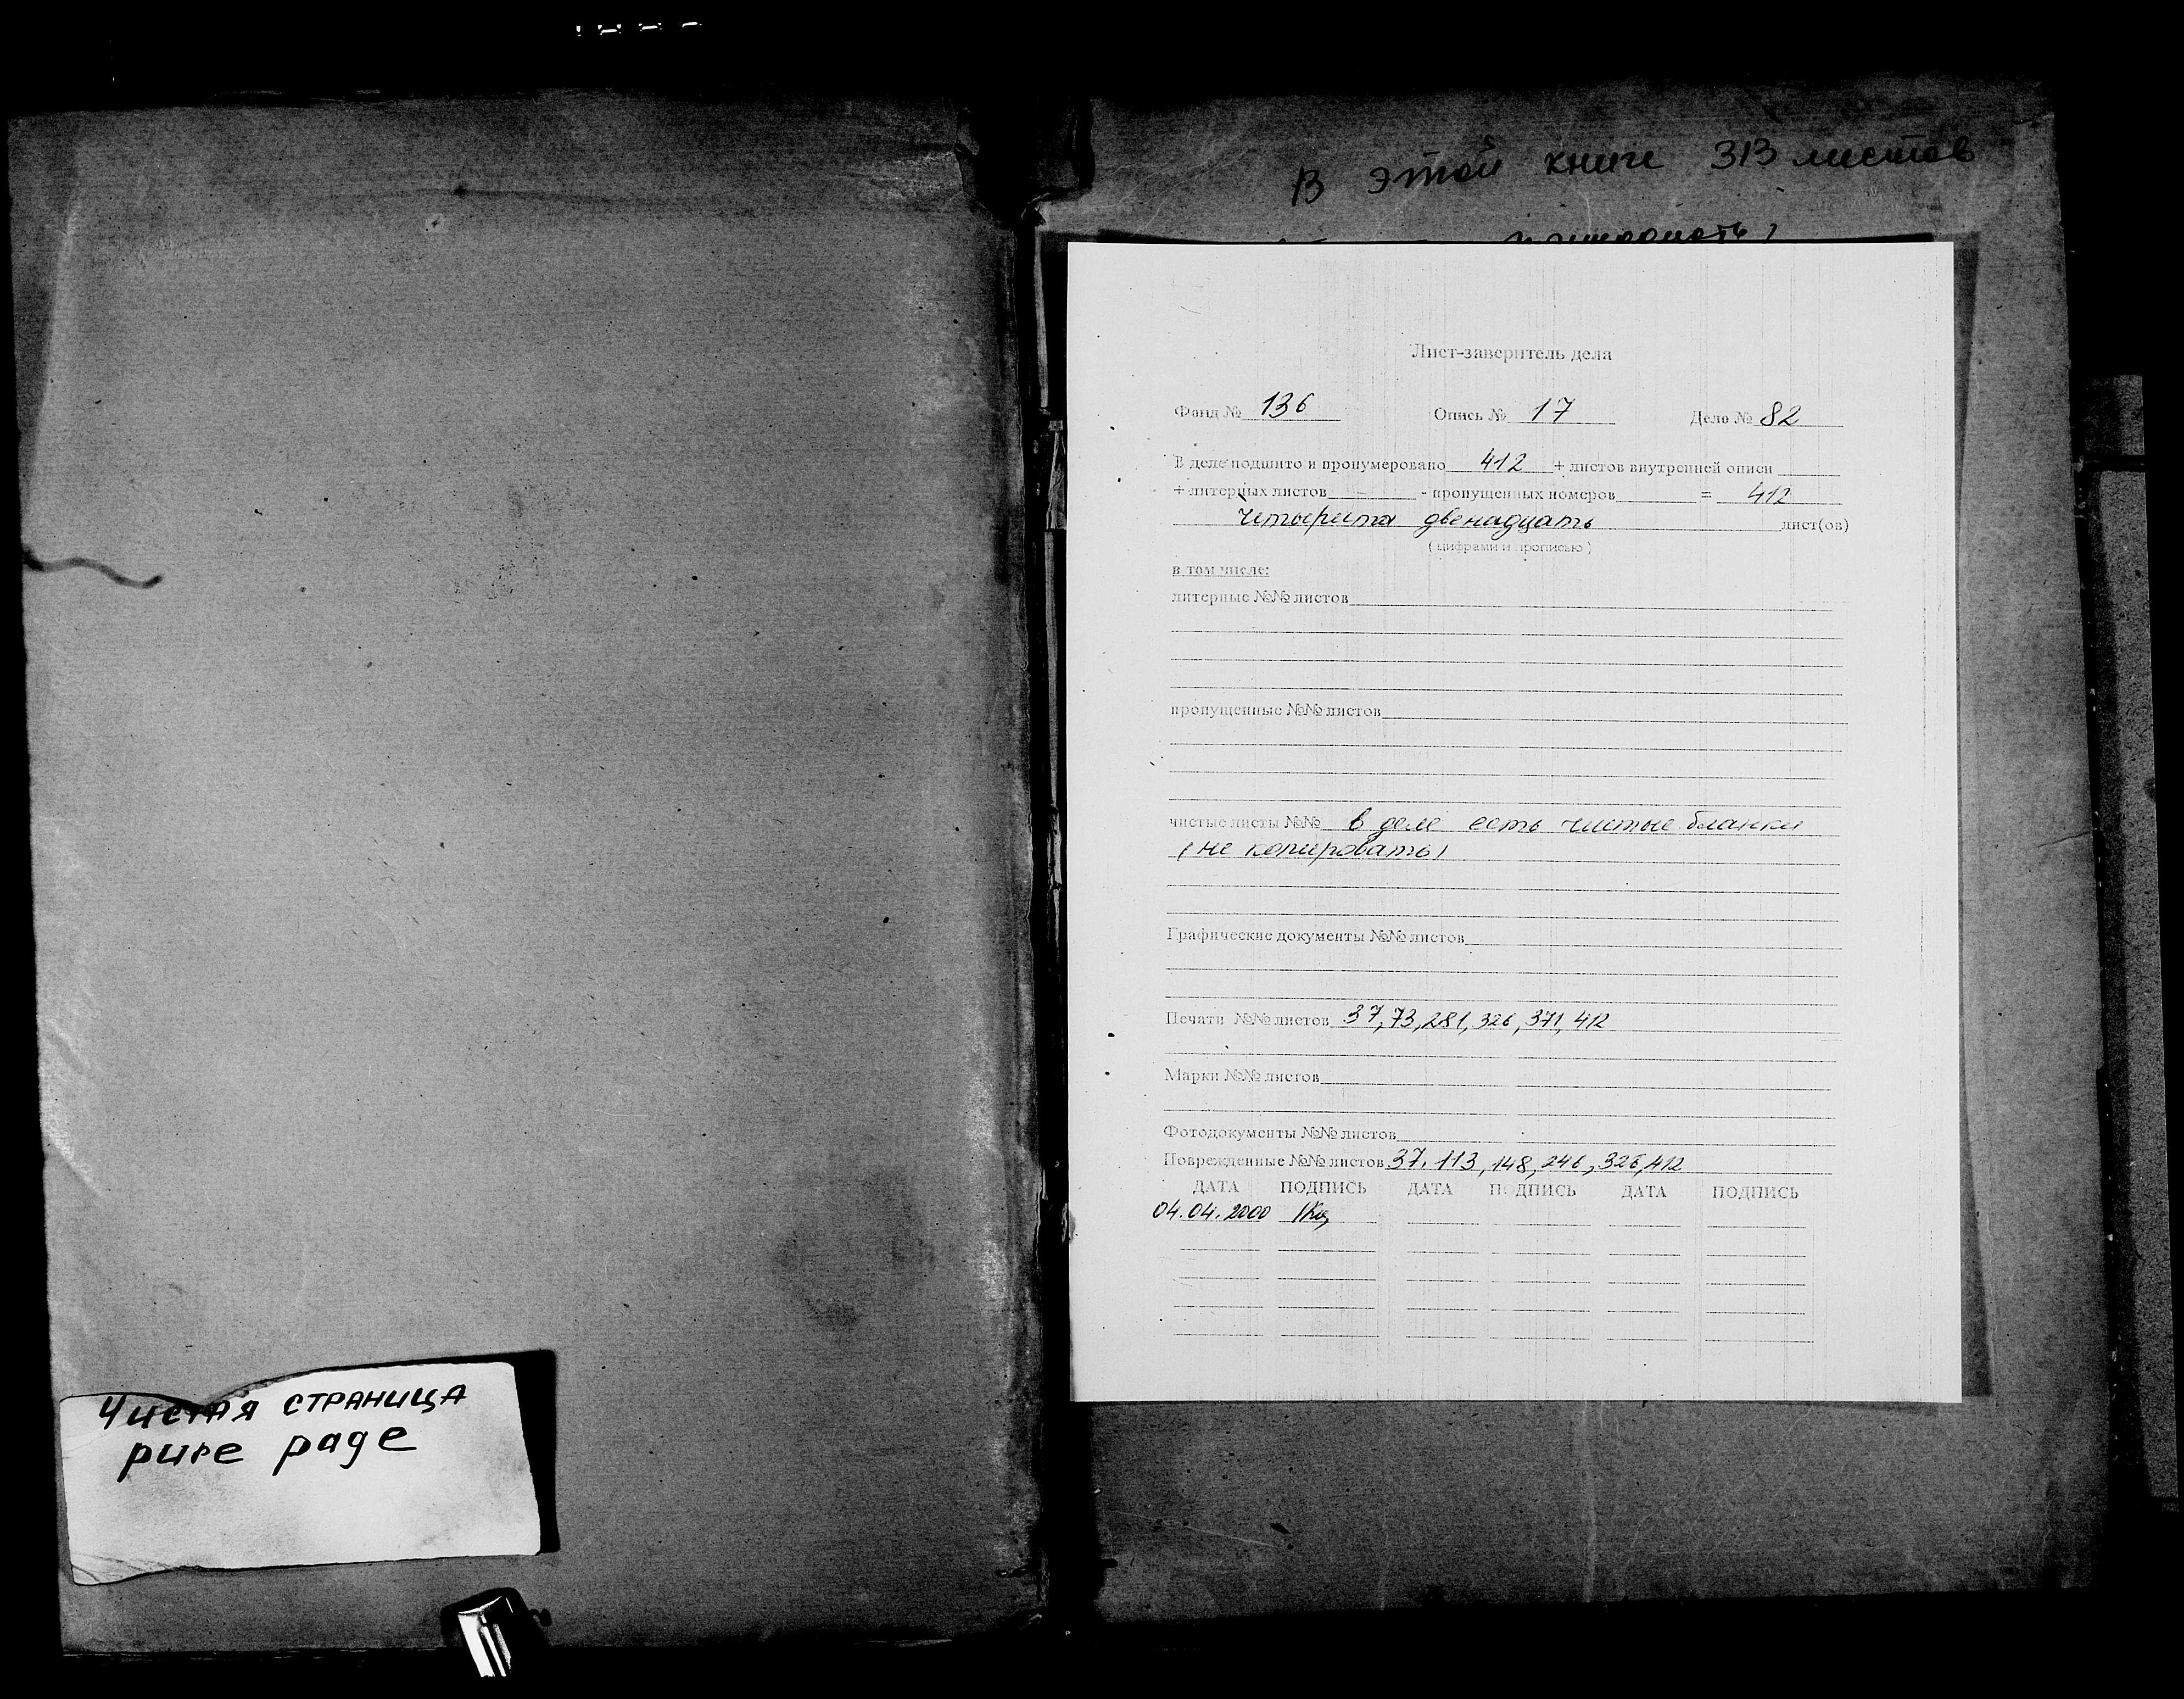 В этой книге 313 листов
Лист-заверитель дела
Фонд № 136 Опись № 17 Дело № 82
В деле подшито и пронумеровано 412 + листов внутренней описи
+ литерных листов - пропущенных номеров = 412
Четыреста двенадцать лист(ов)
(цифрами и прописью)
в том числе:
литерные №№ листов
пропущенные №№ листов
чистые листы №№ в деле есть чистые бланки
(не копировать)
Графические документы №№ листов
Печати №№ листов 37, 73, 281, 326, 371, 412
Марки №№ листов
Фотодокументы №№ листов
Поврежденные №№ листов 37. 113, 148, 246, 326, 412
ДАТА ПОДПИСЬ ДАТА ПОДПИСЬ ДАТА ПОДПИСЬ
04.04.2000
Чистая страница
pure page